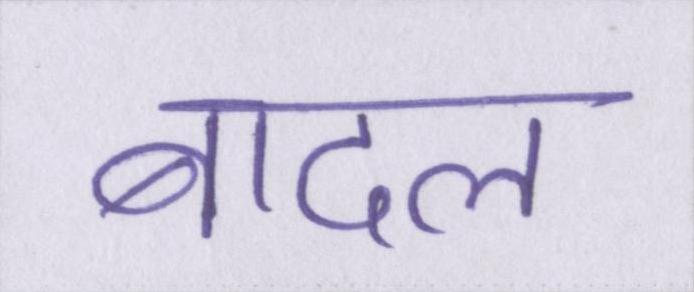 बादल